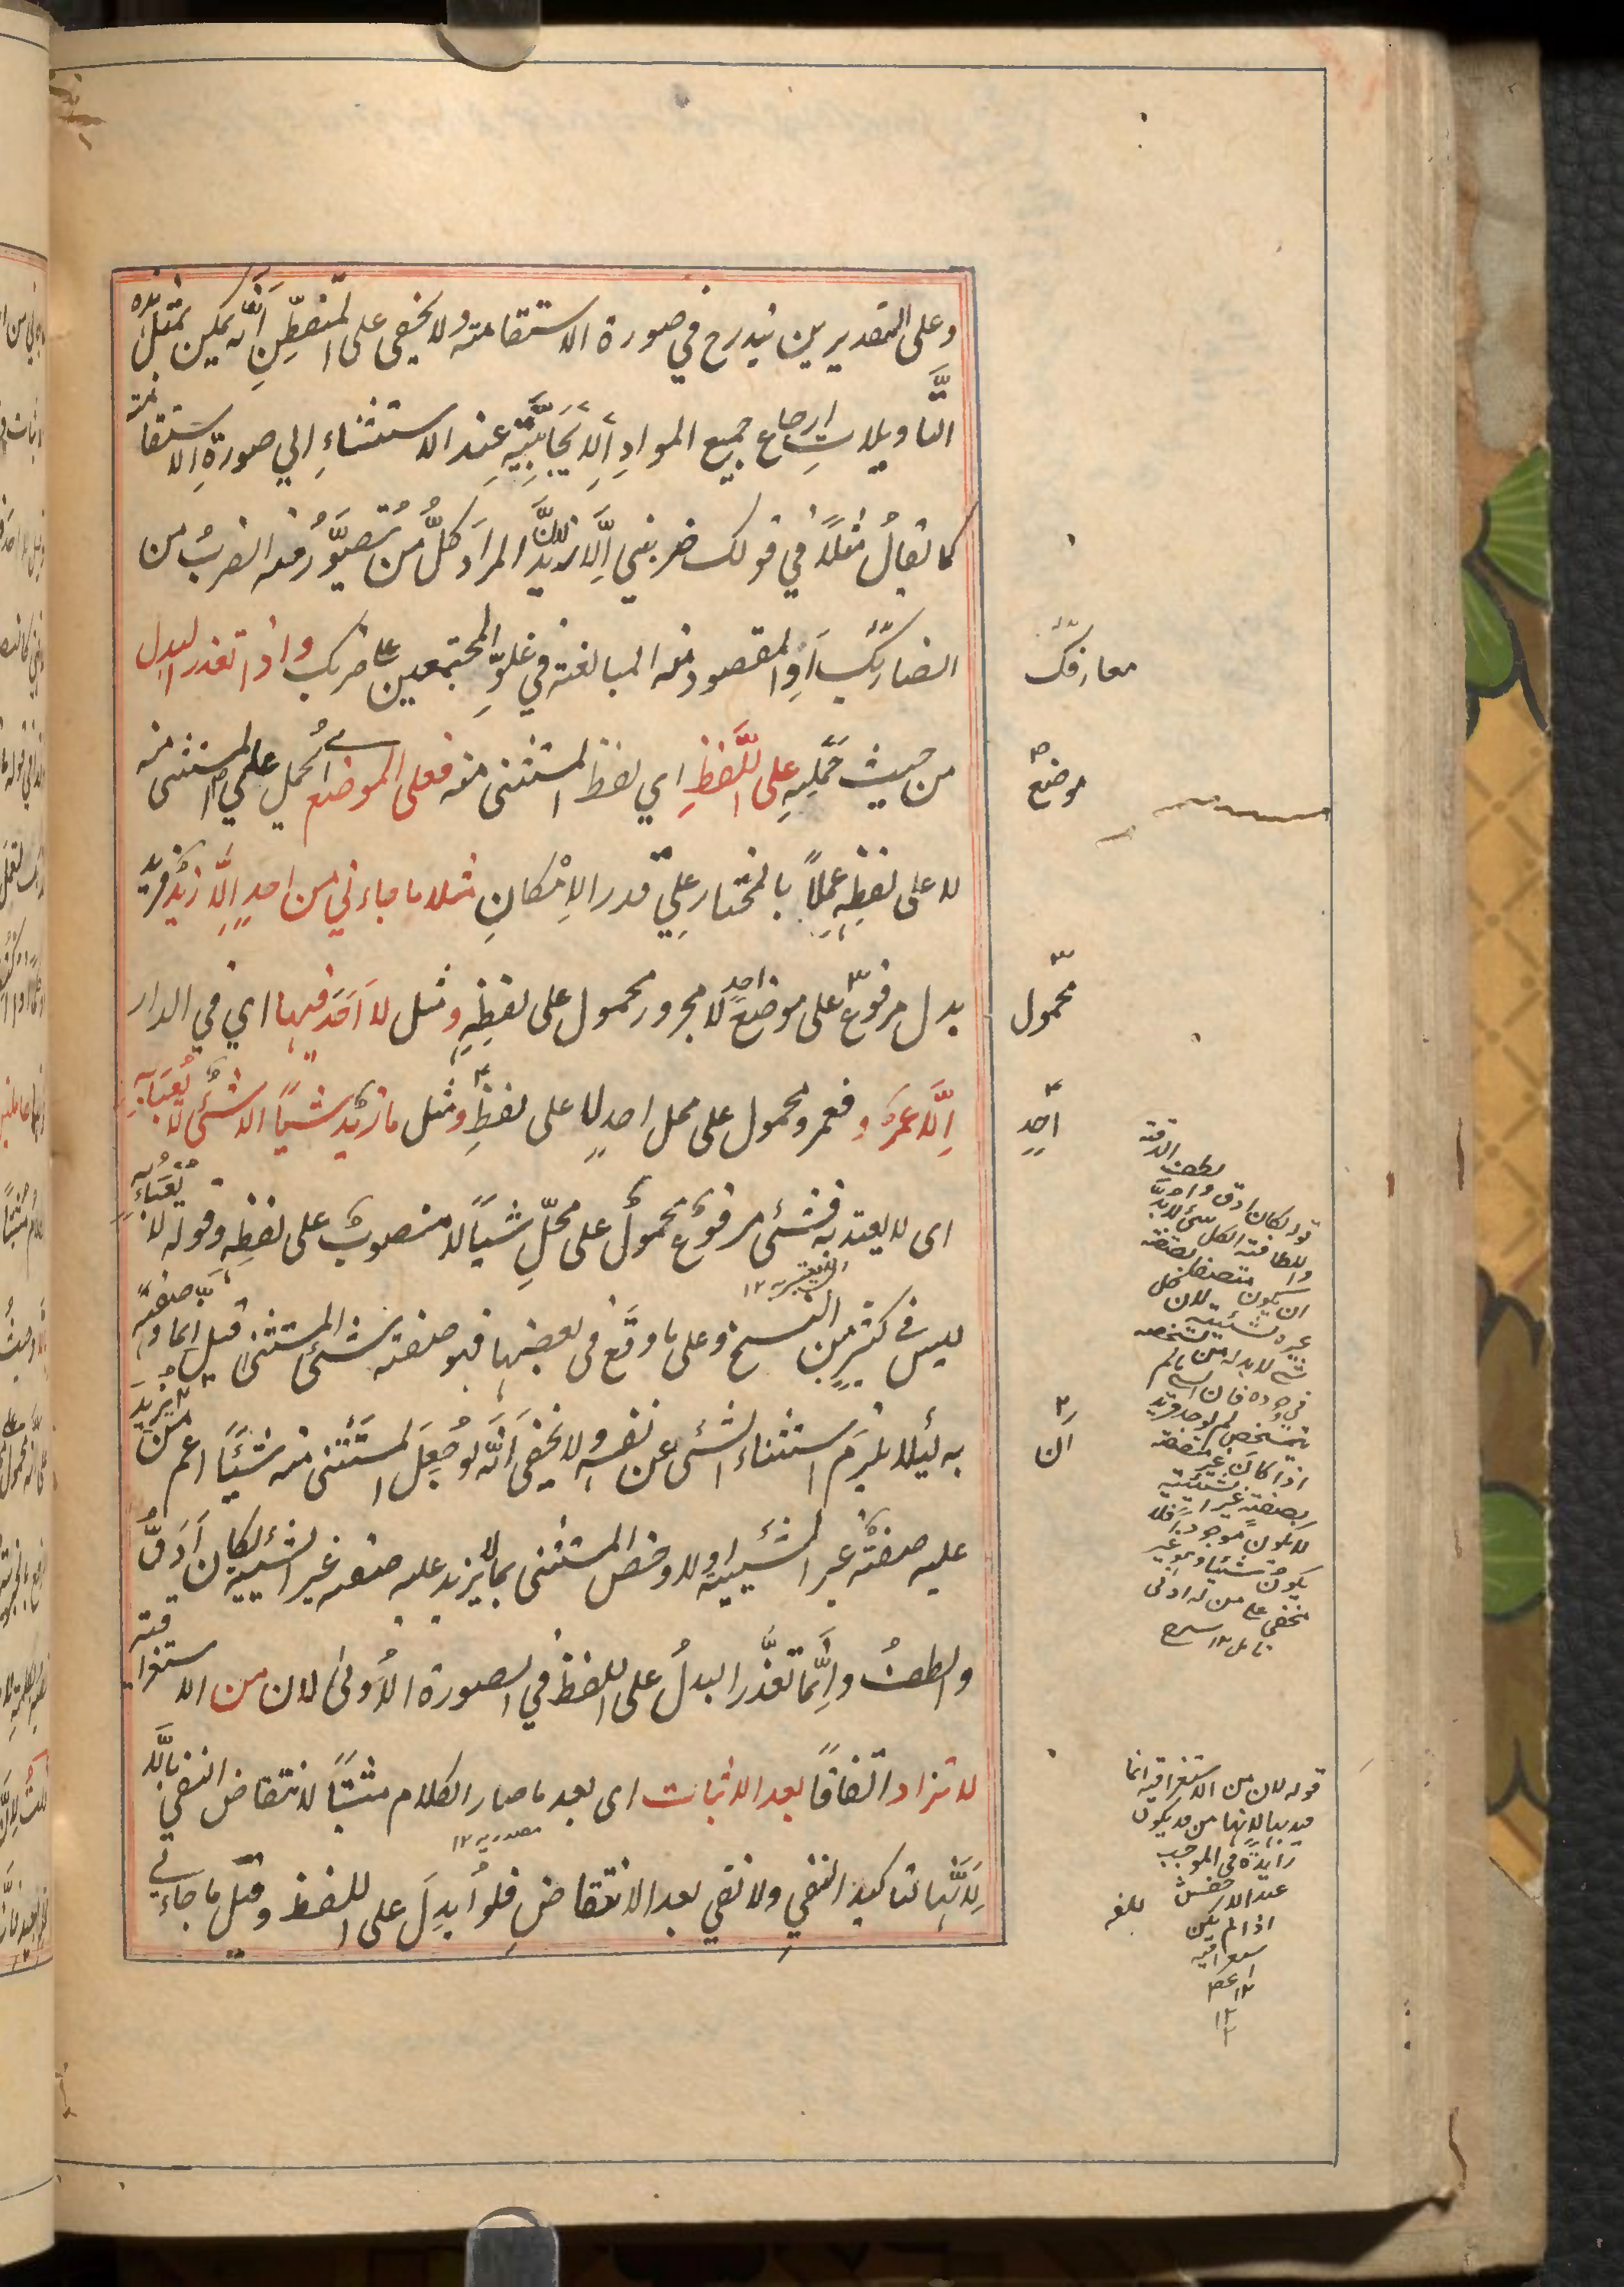 وعلى التقديرين يندرج في صورة الاستقامة ولا يخفى على المتفطِّنِ أنّه يمكن بمثل هذه
التَّأويلاتِ ارجاع جميع الموادِ الإيجابيَّةِ عند الاستثناءِ الي صورةِ الاستقامة
كما تقالُ مثلاً في قولك ضربني إلَّا زيدٌ المرادَ كلُّ من يُتصوَّرُ منه الضربُ من
معارفك
الضاربُ أو المقصود منه المبالغة في غلوِّ المجتمعين على ضربك واذا تعذر البدل
من حيث حَمْلِهِ على اللَّفظِ اي لفظ المستثنى منه فعلى الموضع اي يُحمل على المستثنى منه
موضع
لا على لفظِهِ عملاً بالمختار على قدر الإمْكانِ مثل ما جاءني من احدٍ إلَّا زيدٌ فزيد
بدل مرفوعٌ على موضع احدٍ لا مجرور محمول على لفظِهِ ومثل لا أحَدَ فيها اي في الدار
محمول
إلَّا عمرٌو فعمرو محمول على محل احد لا على لفظِهِ ومثل ما زيدٌ شيئًا الا شئٌ لا يُعبَأُ به
احدٍ
اى لا يعتد به فشئى مرفوعٌ محمولٌ على محلِّ شيئًا لا منصوبٌ على لفظِهِ وقوله لا يُعبأُ به
ليس في كثيرٍ من النسخ وعلى ما وقَع في بعضها فهو صفة شئى المستثنى قيل انما وصفه
به لئلا يلزمَ استثناء الشئى عن نفسه ولا يخفى أنَّه لو جُعِلَ المستثنى منه شيئًا اعم من ان يزيد
عليه صفةٌ غير الشيئية اولا وخص المستثنى بما لا يزيد عليه صفة غير الشيئية لكان أدقَّ
والطفُ وإنَّما تعذَّر البدلُ على اللفظ في الصورة الأولىٰ لان من الاستغراقية
لا تزاد اتفاقًا بعد الاثبات اى بعد ما صار الكلام مثبتًا لانتقاض النفي بالَّا
مصدرية ١٢
لِأنَّها لتاكيد النفي ولا نفي بعد الانتقاضِ فلو أُبدِلَ على اللفظ وقيل ما جاءني
قوله لكان ادق
ان يكون
لا بد له من
اذا كان غير
بصفة غير الشيئية
لا يكون موجودا فلا
يكون شيئا
قوله لان من الاستغراقية انما
قيد بها لانها من قد يكون
زايدة في الموجب
عند الاخفش
اذا لم يكن
١٢